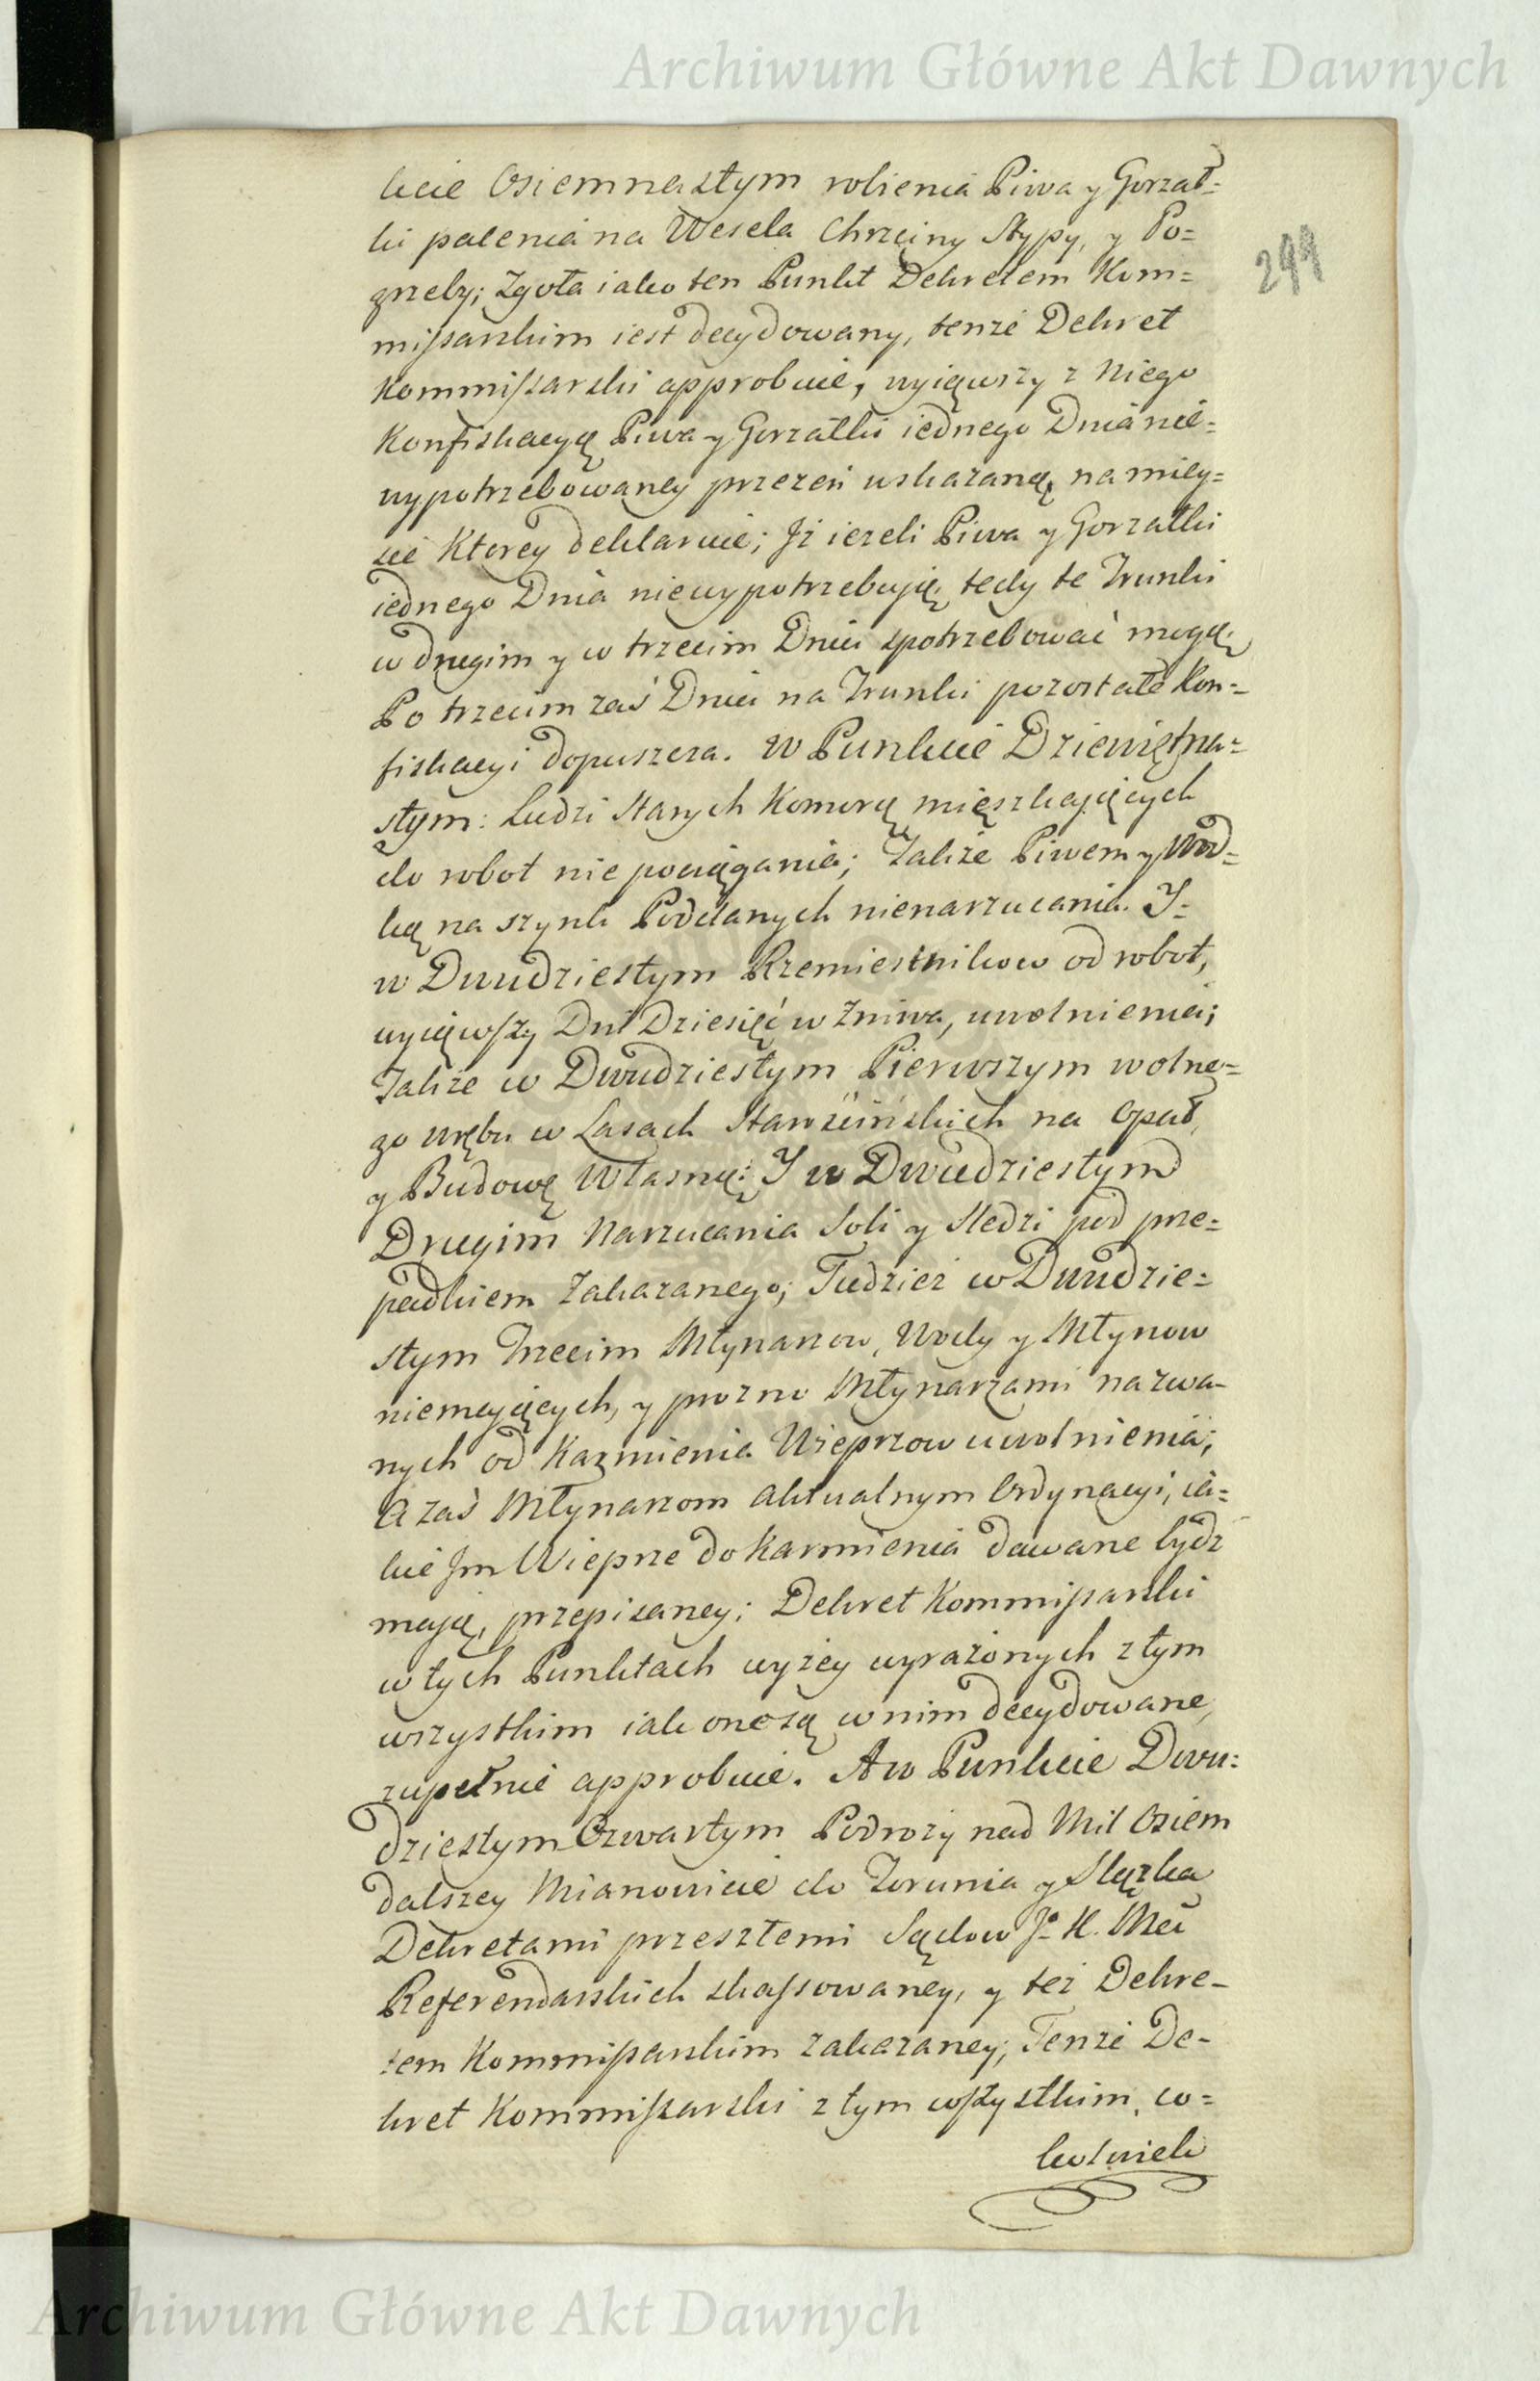 Archiwum Główne Akt Dawnych
299
kcie Osiemnastym robienia Piwa y Gorzał=
ki palenia na Wesela Chrzciny Stypy, y Po=
grzeby; Zgoła iako ten Punkt Dekretem Kom=
missarskim iest decydowany, tenże Dekret
Kommissarski approbuie, wyiąwszy z Niego
Konfiskacyą Piwa y Gorzałki iednego Dnia nie=
wypotrzebowaney przezeń wskazaną, na miey=
sce Ktorey deklaruie; Iż ieżeli Piwa y Gorzałki
iednego Dnia niewypotrzebuią, tedy te Trunki
w drugim y w trzecim Dniu spotrzebować mogą;
Po trzecim zaś Dniu na Trunki pozostałe Kon=
fiskacyi dopuszcza. W Punkcie Dziewiętna=
stym: Ludzi Starych Komorą mięszkaiących
do robot nie pociągania; Także Piwem y Wod=
ką na szynk Poddanych nienarzucania. Y=
w Dwudziestym Rzemiesnikow od robot,
wyiąwszy Dni Dziesięć w Żniwa, uwolnienia;
Także w Dwudziestym Pierwszym wolne=
go wrębu w Lasach Starościńskich na Opał,
y Budowę Własną: Y w Dwudziestym
Drugim Narzucania Soli y Sledzi pod prze=
padkiem Zakazanego; Tudzież w Dwudzie=
stym Trzecim Młynarzow, Wody y Młynow
niemaiących, y prozno Młynarzami nazwa-
nych od Karmienia Wieprzow uwolnienia;
A zaś Młynarzom aktualnym Ordynacyi, ia=
kie Im Wieprze do Karmienia dawane bydź
maią, przepisaney; Dekret Kommissarski
w tych Punktach wyżey wyrażonych z tym
wszystkim iak one są w nim decydowane,
zupełnie approbuie. A w Punkcie Dwu=
dziestym Czwartym Podroży nad Mil Osiem
dalszey Mianowicie do Torunia y Sląska
Dekretami przeszłemi Sądow J. K. Mci
Referendarskich skassowaney, y też Dekre-
tem Kommissarskim zakazaney; Tenże De-
kret Kommissarski z tym wszystkim, co=
kolwiek
Archiwum Główne Akt Dawnych